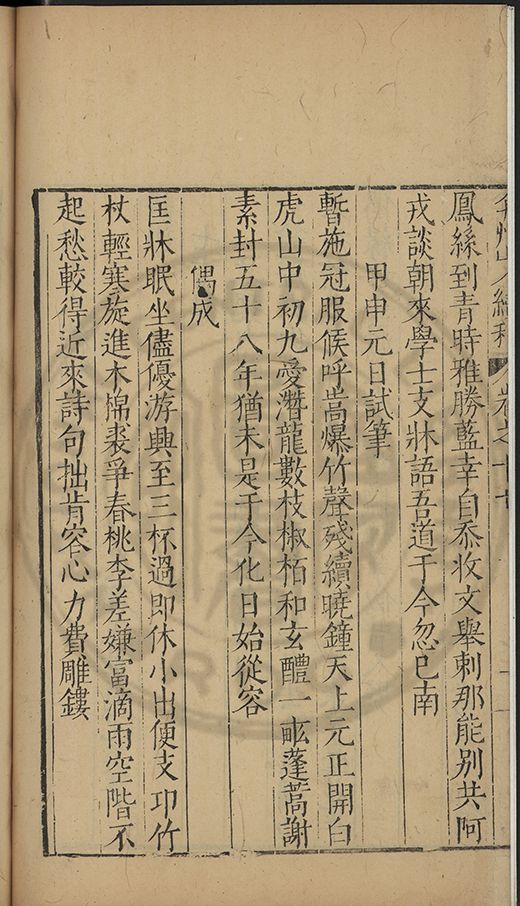 弇州山人續稿 卷之十
鳳絲到青時雅勝藍幸自忝收文舉刺那能別共阿
戎談朝來學士支牀語吾道于今忽已南
甲申元日試筆
暫施冠服候呼嵩爆竹聲殘續曉鐘天上元正開白
虎山中初九愛潛龍數枝椒栢和玄醴一畝蓬蒿謝
素封五十八年猶未是于今化日始從容
偶成
匡牀眠坐儘優游興至三杯過即休小出便支邛竹
杖輕寒旋進木棉裘爭春桃李差嫌富滴雨空階不
起愁較得近來詩句拙肯容心力費雕鏤